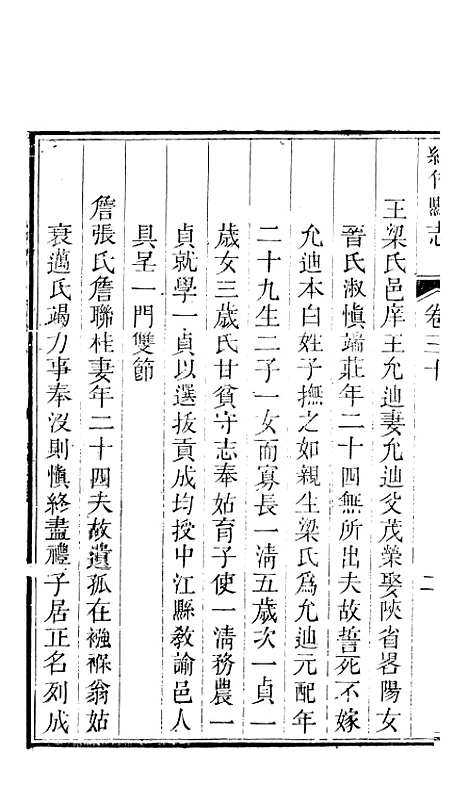 綿竹縣志 卷三十 二
王梁氏邑庠王允迪妻允迪父茂榮娶陝省畧陽女
晉氏淑慎端莊年二十四無所出夫故誓死不嫁
允迪本白姓子撫之如親生梁氏爲允迪元配年
二十九生二子一女而寡長一清五歲次一貞一
歲女三歲氏甘貧守志奉姑育子使一清務農一
貞就學一貞以選拔貢成均授中江縣教諭邑人
具呈一門雙節
詹張氏詹聯桂妻年二十四夫故遺孤在襁褓翁姑
衰邁氏竭力事奉沒則慎終盡禮子居正名列成